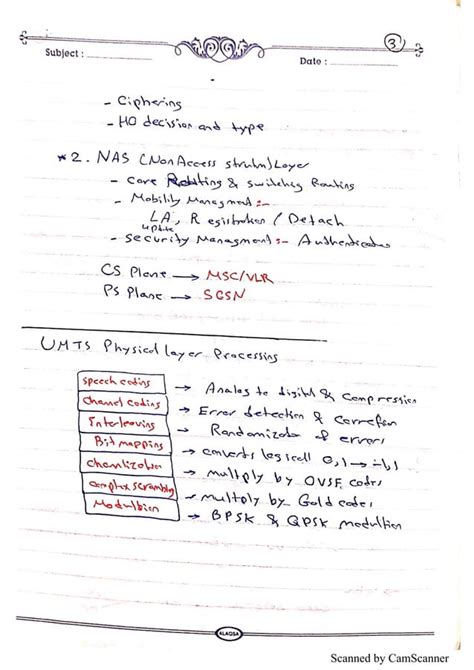 3
Subject :
Date :
- Ciphering
- HO decision and type
* 2. NAS (Non Access stratum) Layer
- Core Routing & switching Routing
- Mobility Managment :-
LA, R egistration / Detach
update
- security Managment :- Authentication
CS Plane → MSC/VLR
PS Plane → SGSN
UMTS Physical layer Processing
speech coding → Analog to digital & compression
Channel coding → Error detection & correction
Interleaving → Randomization of errors
Bit mapping → converts logical 0,1 → -1,1
Chanlization → multiply by OVSF codes
complex scrambling → multiply by Gold codes
Modulation → BPSK & QPSK modultion
ALAQSA
Scanned by CamScanner